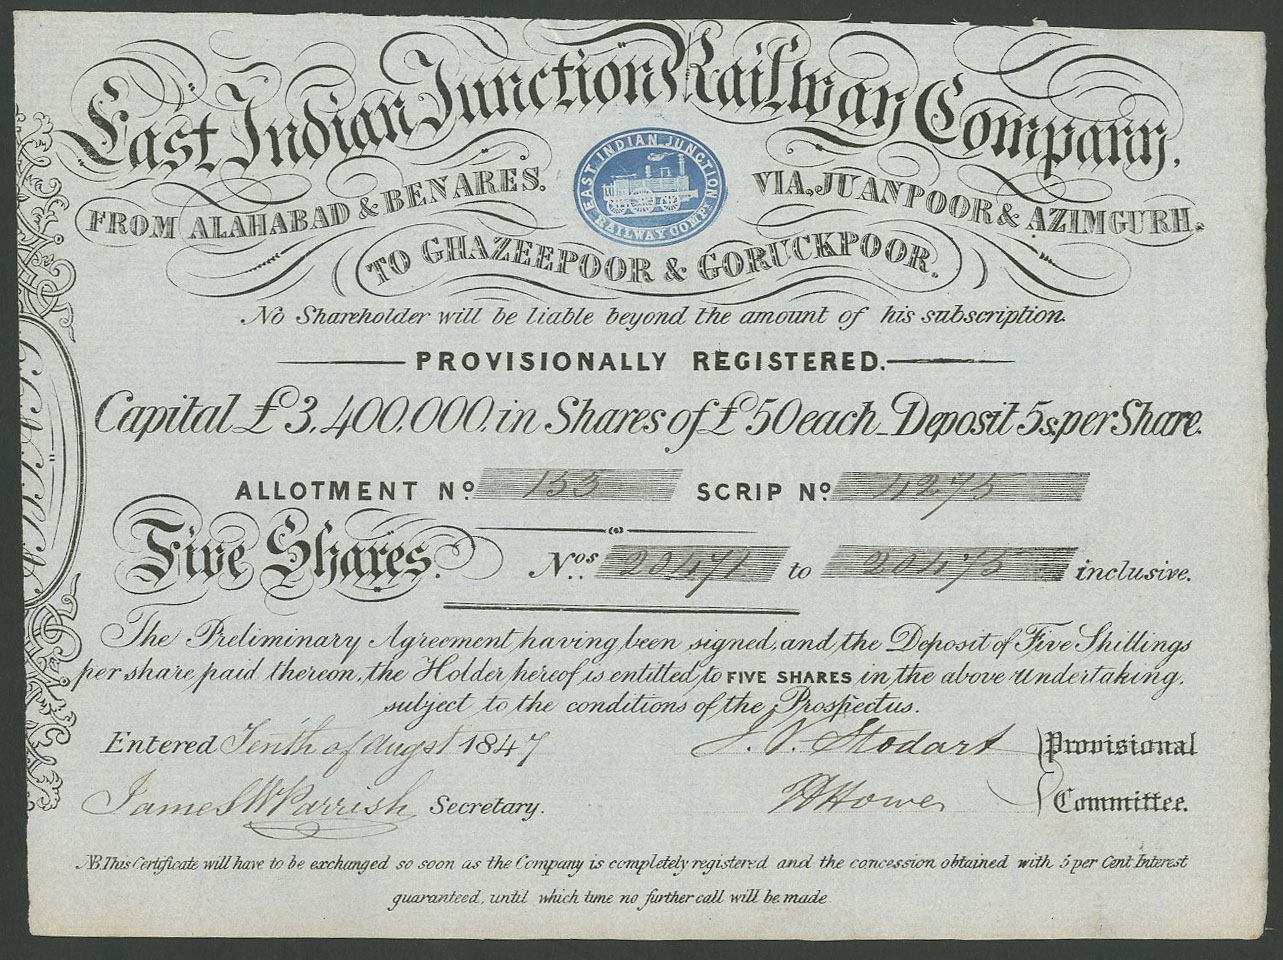 East Indian Junction Railway Company,
FROM ALAHABAD & BENARES. VIA, JUANPOOR & AZIMGURH.
TO GHAZEEPOOR & GORUCKPOOR.
EAST INDIAN JUNCTION
RAILWAY COMPY
No Shareholder will be liable beyond the amount of his subscription.
PROVISIONALLY REGISTERED.
Capital £3,400,000, in Shares of £50 each_Deposit 5s. per Share.
ALLOTMENT No. 153 SCRIP No. 4275
Five Shares. Nos. 20471 to 20475 inclusive.
The Preliminary Agreement having been signed, and the Deposit of Five Shillings
per share paid thereon, the Holder hereof is entitled to FIVE SHARES in the above Undertaking,
subject to the conditions of the Prospectus.
Entered Tenth of Augst 1847 J. V. Stodart Provisional
James W Parrish Secretary. Howe Committee.
NB. This Certificate will have to be exchanged so soon as the Company is completely registered and the concession obtained with 5 per Cent Interest
guaranteed, until which time no further call will be made